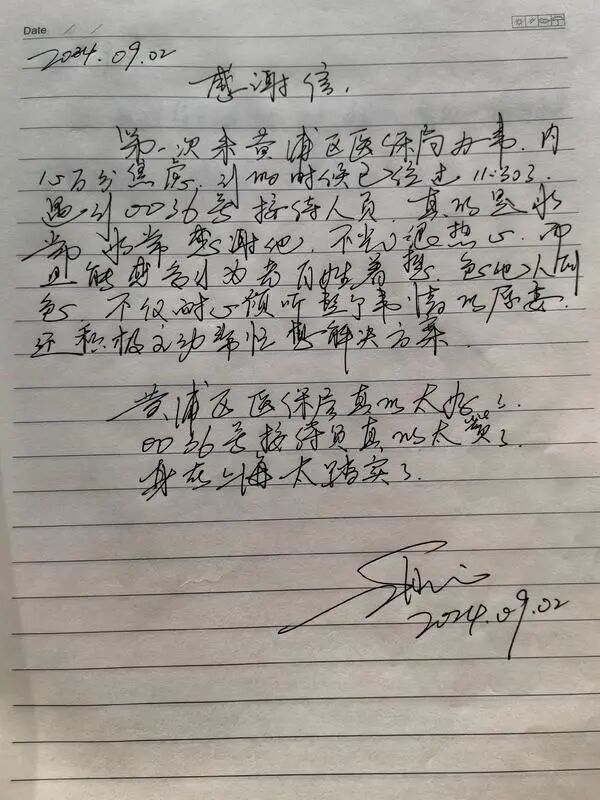 Date / /
2024.09.02
感谢信.
第一次来黄浦区医保局办事,内
心万分焦虑,到的时候已经过11:30了.
遇到0036号接待人员,真的是非
常非常感谢他,不光很热心,而
且能感同身为老百姓着想,急他人所
急,不仅耐心倾听整个事情的原委,
还积极主动帮忙想解决方案.
黄浦区医保局真的太好了.
0036号接待员真的太赞了.
身在上海太踏实了.
2024.09.02